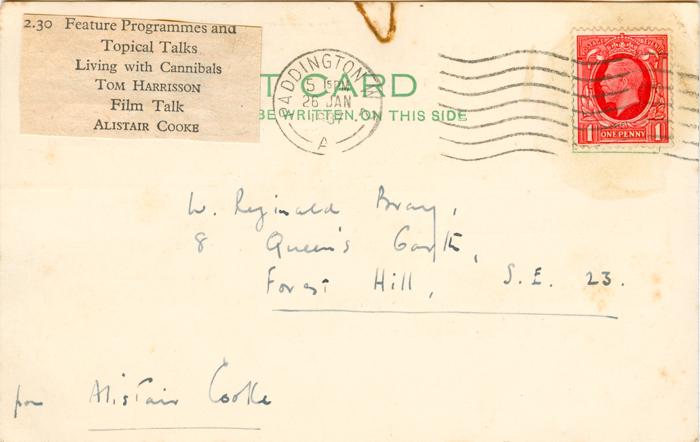 2.30 Feature Programmes and
Topical Talks
Living with Cannibals
TOM HARRISSON
Film Talk
ALISTAIR COOKE
T CARD
BE WRITTEN ON THIS SIDE
PADDINGTON W.2
5 15PM
26 JAN
A
ONE PENNY
1 1
W. Reginald Bray,
8 Queen's Garth,
Forest Hill, S.E. 23.
from Alistair Cooke